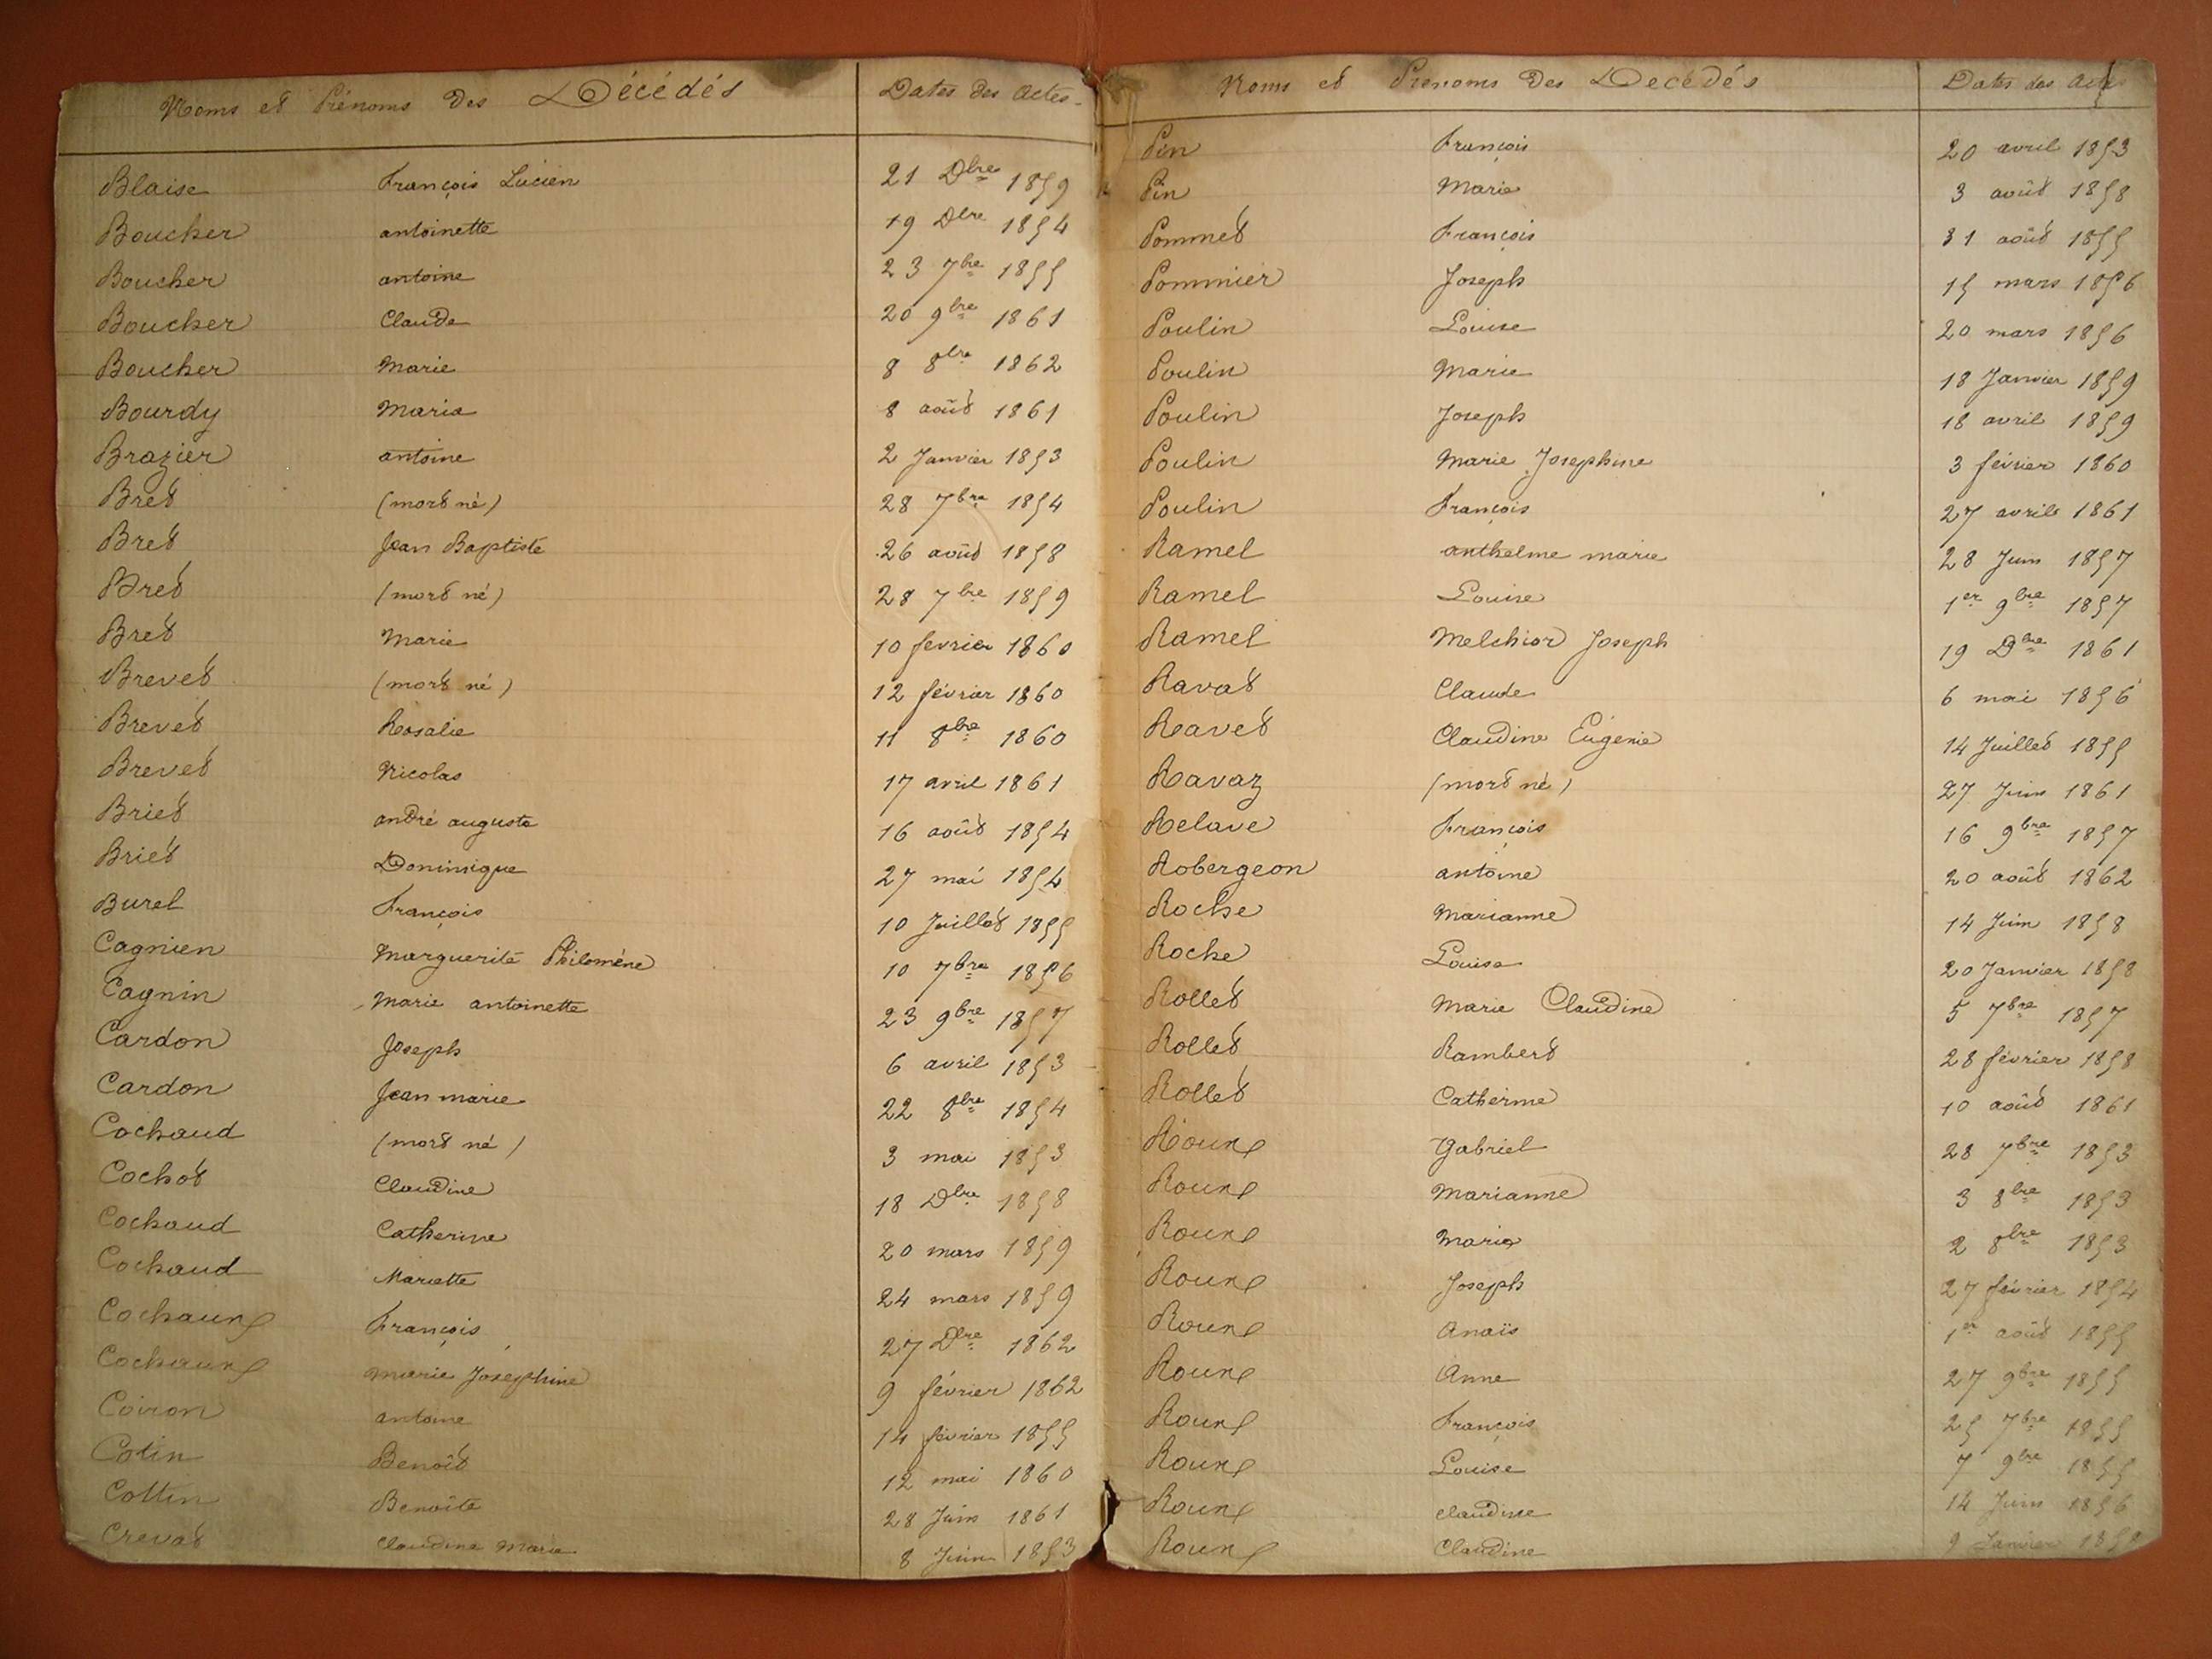 Noms et Prénoms des Décédés Dates des Actes
Blaise François Lucien 21 Dbre 1859
Boucher antoinette 19 Dbre 1854
Boucher antoine 23 7bre 1855
Boucher Claude 20 9bre 1861
Boucher Marie 8 8bre 1862
Bourdy Marie 8 août 1861
Brazier antoine 2 Janvier 1853
Bret (mort né) 28 7bre 1854
Bret Jean Baptiste 26 août 1858
Bret (mort né) 28 7bre 1859
Bret Marie 10 fevrier 1860
Brevet (mort né) 12 février 1860
Brevet Rosalie 11 8bre 1860
Brevet Nicolas 17 avril 1861
Briet andré auguste 16 août 1854
Briet Dominique 27 mai 1854
Burel François 10 Juillet 1855
Cagnien Marguerite Philomène 10 7bre 1856
Cagnin Marie antoinette 23 9bre 1857
Cardon Joseph 6 avril 1853
Cardon Jean marie 22 8bre 1854
Cochaud (mort né) 3 mai 1853
Cochot Claudine 18 Dbre 1858
Cochaud Catherine 20 mars 1859
Cochaud Mariette 24 mars 1859
Cochaux François 27 Dbre 1862
Cochaux marie Joséphine 9 février 1862
Coiron antoine 14 février 1855
Cotin Benoît 12 mai 1860
Cottin Benoîte 28 Juin 1861
Crevat Claudine Marie 8 Juin 1853
Noms et Prénoms des Décédés Dates des Actes
Pin François 20 avril 1853
Pin Marie 3 août 1858
Pommet François 31 août 1855
Pommier Joseph 15 mars 1856
Poulin Louise 20 mars 1856
Poulin Marie 18 Janvier 1859
Poulin Joseph 18 avril 1859
Poulin Marie Josephine 3 février 1860
Poulin François 27 avril 1861
Ramel anthelme marie 28 Juin 1857
Ramel Louise 1er 9bre 1857
Ramel Melchior Joseph 19 Dbre 1861
Ravat Claude 6 mai 1856
Ravet Claudine Eugénie 14 Juillet 1855
Ravaz (mort né) 27 Juin 1861
Relave François 16 9bre 1857
Robergeon antoine 20 août 1862
Roche Marianne 14 Juin 1858
Roche Louise 20 Janvier 1858
Rollet Marie Claudine 5 7bre 1857
Rollet Rambert 28 février 1858
Rollet Catherine 10 août 1861
Roux Gabriel 28 7bre 1853
Roux Marianne 3 8bre 1853
Roux Marie 2 8bre 1853
Roux Joseph 27 février 1854
Roux Anaïs 1er août 1855
Roux Anne 27 9bre 1855
Roux François 25 7bre 1855
Roux Louise 7 9bre 1855
Roux claudine 14 Juin 1856
Roux Claudine 9 Janvier